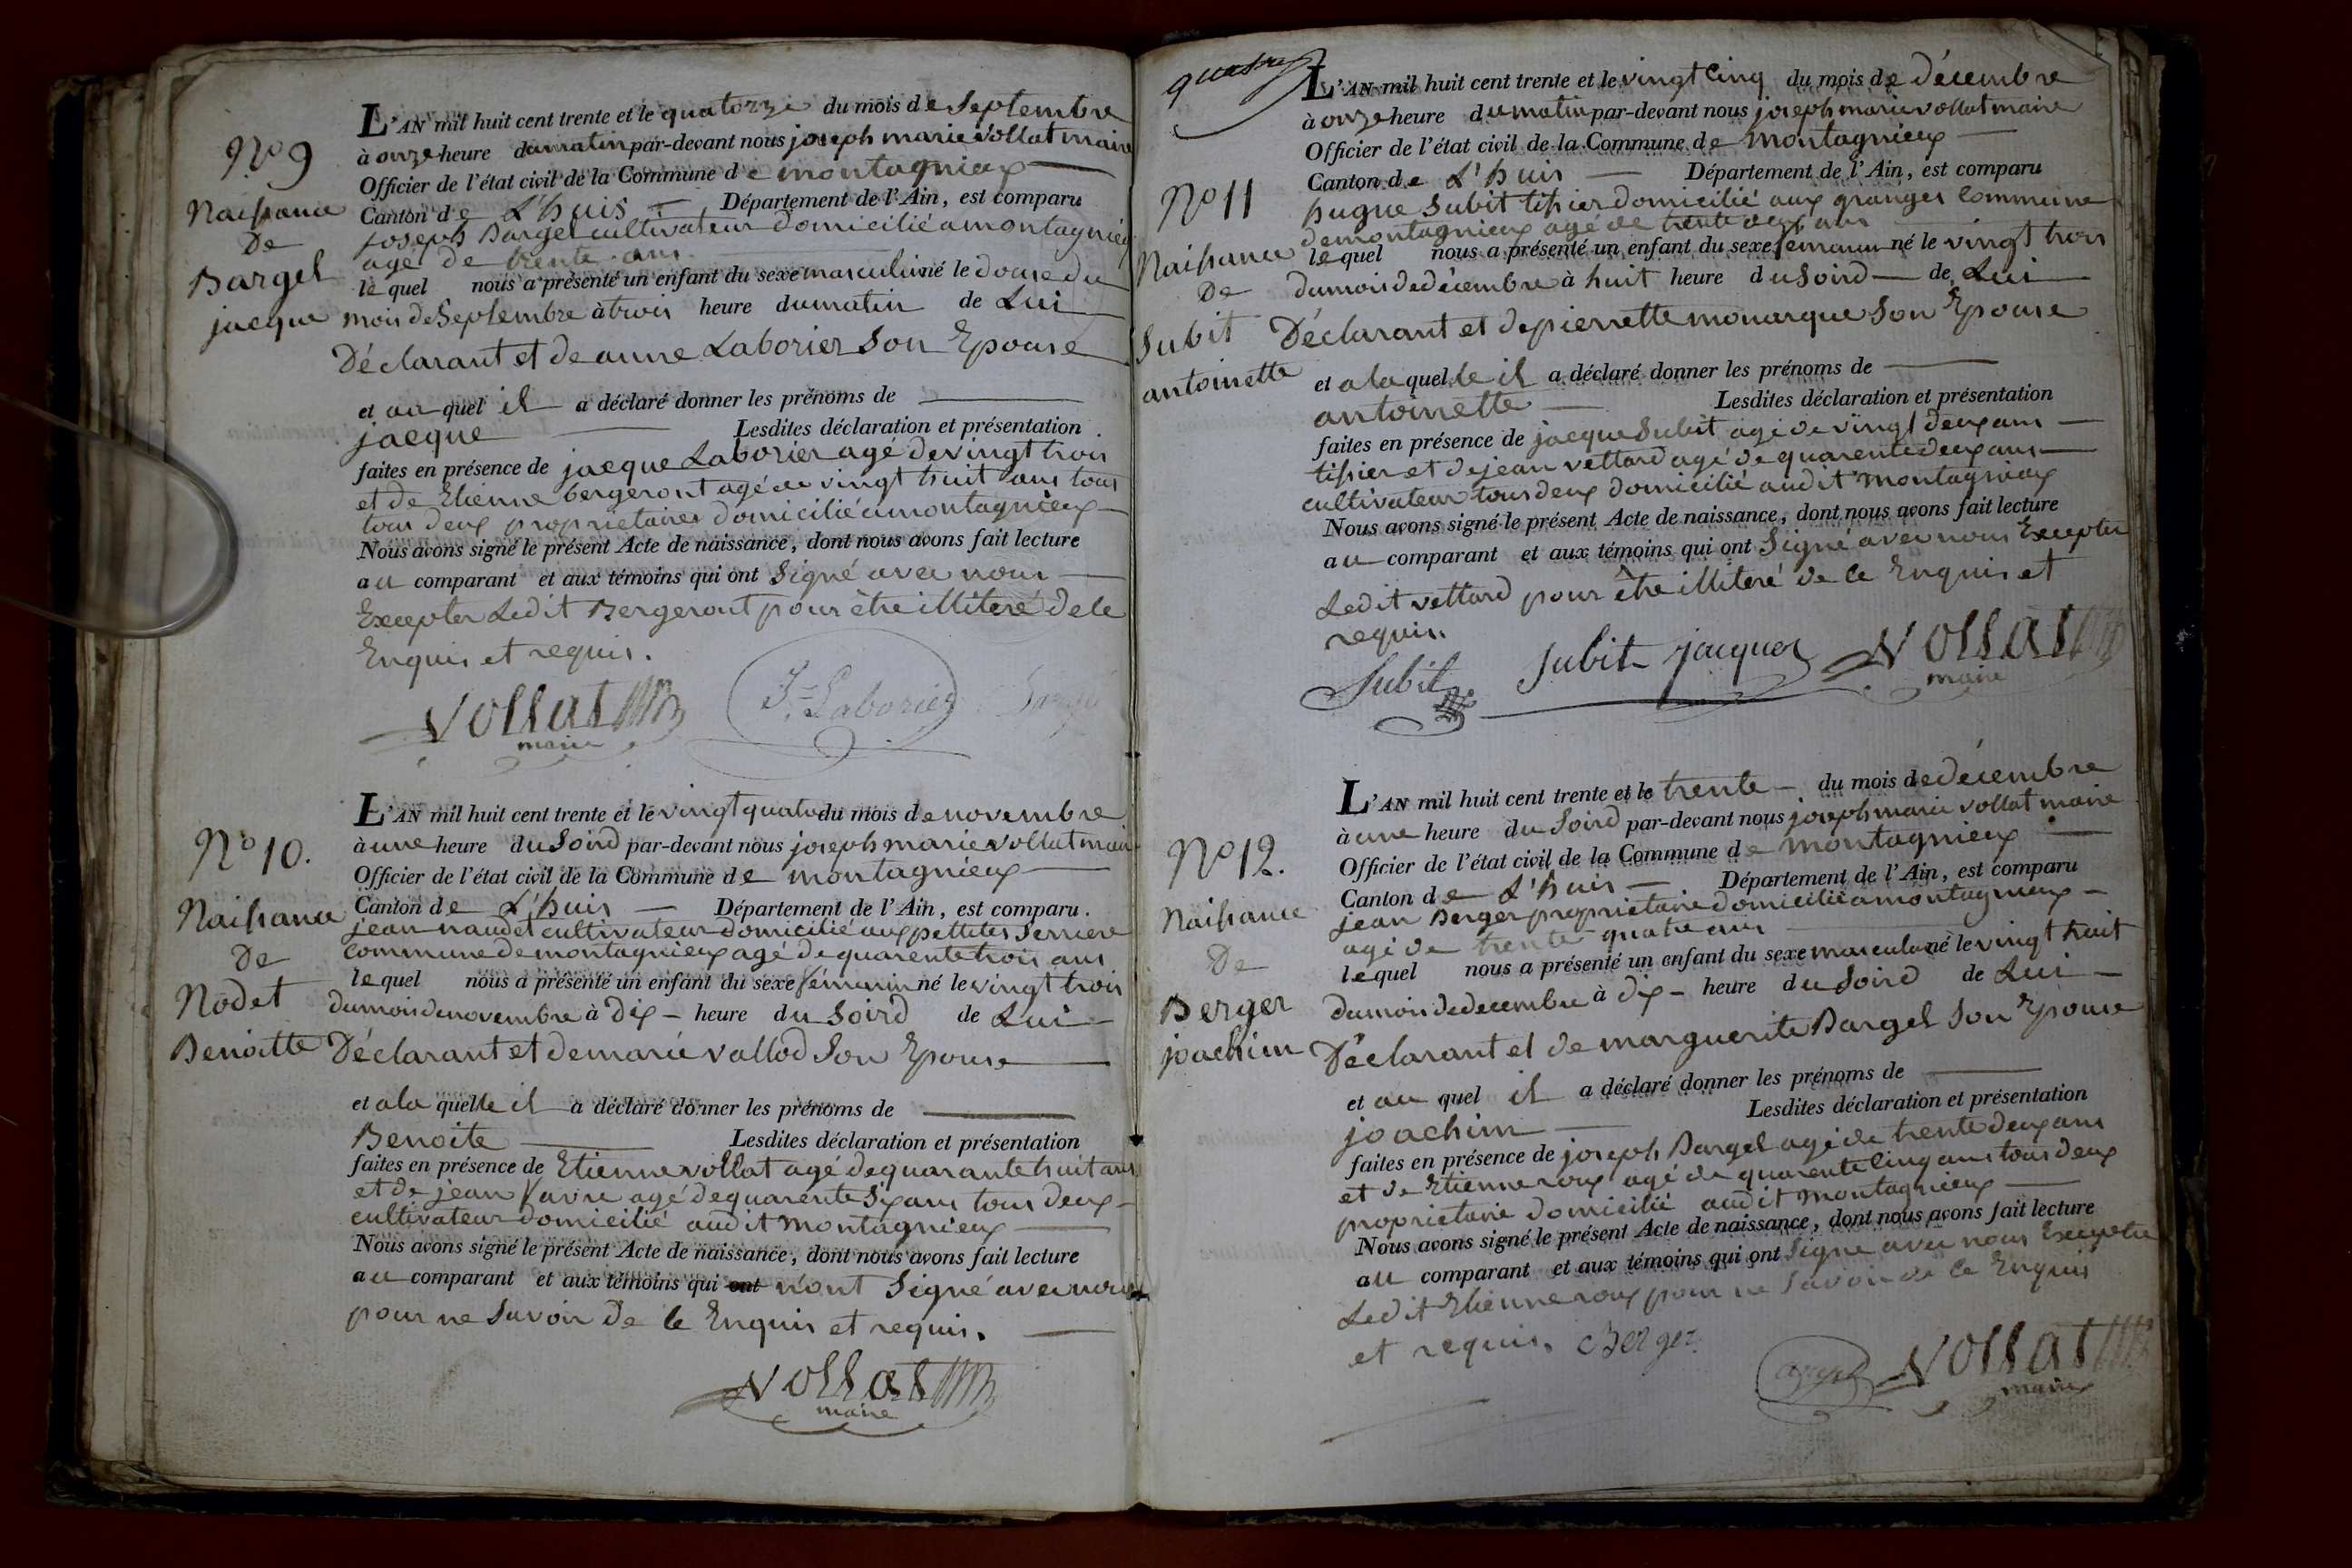 N.º 9
Naissance
De
Bargel
jacque
L'AN mil huit cent trente et le quatorze du mois de Septembre
à onze heure du matin par-devant nous joseph marie vollat maire
Officier de l'état civil de la Commune de montagnieux
Canton de L'huis Département de l'Ain, est comparu
joseph Bargel cultivateur domicilié a montagnieux
agé de trente ans
le quel nous a présenté un enfant du sexe masculin né le douse du
mois de Septembre à trois heure du matin de Lui
Déclarant et de anne Laborier Son Epouse
et au quel il a déclaré donner les prénoms de
jacque Lesdites déclaration et présentation
faites en présence de jacque Laborier agé de vingt trois
et de Etienne bergeront agé de vingt huit ans tous
tous deux proprietaires domicilié a montagnieux
Nous avons signé le présent Acte de naissance, dont nous avons fait lecture
au comparant et aux témoins qui ont Signé avec nous
Excepter Ledit Bergeront pour être illiteré de le
Enquis et requis.
vollat maire J. Laborier
Nº 10.
Naissance
De
Nodet
Benoitte
L'AN mil huit cent trente et le vingt quatre du mois de novembre
à une heure du Soird par-devant nous joseph marie vollat maire
Officier de l'état civil de la Commune de montagnieux
Canton de L'huis Département de l'Ain, est comparu.
jean naudet cultivateur domicilié aux pettites Serriere
commune de montagnieux agé de quarente trois ans
le quel nous a présenté un enfant du sexe féminin né le vingt trois
du mois de novembre à Dix heure du Soird de Lui
Déclarant et de marie vallod Son Epouse
et a la quelle il a déclaré donner les prénoms de
Benoite Lesdites déclaration et présentation
faites en présence de Etienne vollat agé de quarante huit ans
et de jean favre agé de quarente Six ans tous deux
cultivateur domicilié audit montagnieux
Nous avons signé le présent Acte de naissance, dont nous avons fait lecture
au comparant et aux témoins qui ont n'ont Signé avec nous
pour ne Savoir De le Enquis et requis.
vollat
maire
quatre
Nº 11
Naissance
De
Subit
antoinette
L'AN mil huit cent trente et le vingt Cinq du mois de décembre
à onze heure du matin par-devant nous joseph marie vollat maire
Officier de l'état civil de la Commune de montagnieux
Canton de L'huis Département de l'Ain, est comparu
hugue Subit tissier domicilié aux granges commune
de montagnieux agé de trente deux ans
le quel nous a présenté un enfant du sexe féminin né le vingt trois
du mois de décembre à huit heure du Soird de Lui
Déclarant et de pierrette monarque Son Epouse
et a la quelle il a déclaré donner les prénoms de
antoinette Lesdites déclaration et présentation
faites en présence de jacque Subit agé de vingt deux ans
tissier et de jean vettard agé de quarente deux ans
cultivateur tous deux domicilié audit montagnieux
Nous avons signé le présent Acte de naissance, dont nous avons fait lecture
au comparant et aux témoins qui ont Signé avec nous Excepter
Ledit vettard pour être illiteré de le Enquis et
requis.
Subit Subit jacques vollat
maire
Nº 12.
Naissance
De
Berger
joachim
L'AN mil huit cent trente et le trente du mois de décembre
à une heure du Soird par-devant nous joseph marie vollat maire
Officier de l'état civil de la Commune de montagnieux
Canton de L'huis Département de l'Ain, est comparu
jean Berger proprietaire domicilié a montagnieux
agé de trente quatre ans
le quel nous a présenté un enfant du sexe masculin né le vingt huit
du mois de decembre à dix heure du Soird de Lui
Déclarant et de marguerite Bargel Son Epouse
et au quel il a déclaré donner les prénoms de
joachim Lesdites déclaration et présentation
faites en présence de joseph Bargel agé de trente deux ans
et de Etienne roux agé de quarente Cinq ans tous deux
proprietaire domicilié audit montagnieux
Nous avons signé le présent Acte de naissance, dont nous avons fait lecture
au comparant et aux témoins qui ont Signé avec nous Excepter
Ledit Etienne roux pour ne Savoir de le Enquis
et requis. Berger
vollat
maire